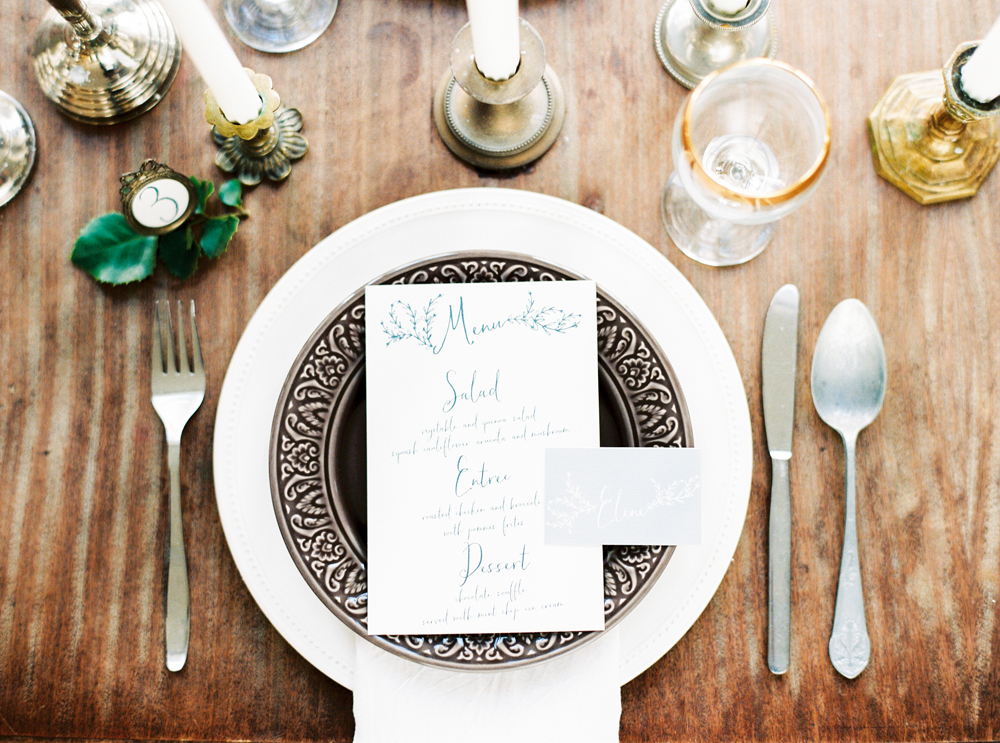 3
Menu
Salad
vegetable and quinoa salad
squash cauliflower arugula and mushroom
Entree
roasted chicken and broccoli
with pommes frites
Eline
Dessert
chocolate souffle
served with mint chip ice cream